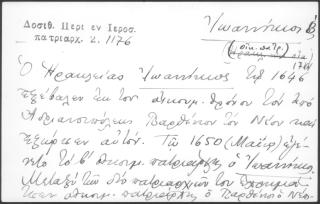 Δοσίθ. Περί εν Ιεροσ.
πατριαρχ. 2. 1176
Ἰωαννίκιος Β
(οἰκ. πατρ.)
Ὁ Ἡρακλείας Ἰωαννίκιος τῷ 1646
ἐξέβαλεν ἐκ τοῦ οἰκουμ. θρόνου τὸν ἀπὸ
Ἀδριανουπόλεως Παρθένιον τὸν Νέον καὶ
ἐξώρισεν αὐτόν. Τῷ 1650 (Μαΐῳ) ἐγέ-
νετο τὸ β' οἰκουμ. πατριάρχης ὁ Ἰωαννίκιος
Μεταξὺ τῶν δύο πατριαρχιῶν του
οἰκουμ. πατριάρχης ὁ Παρθένιος Νέος